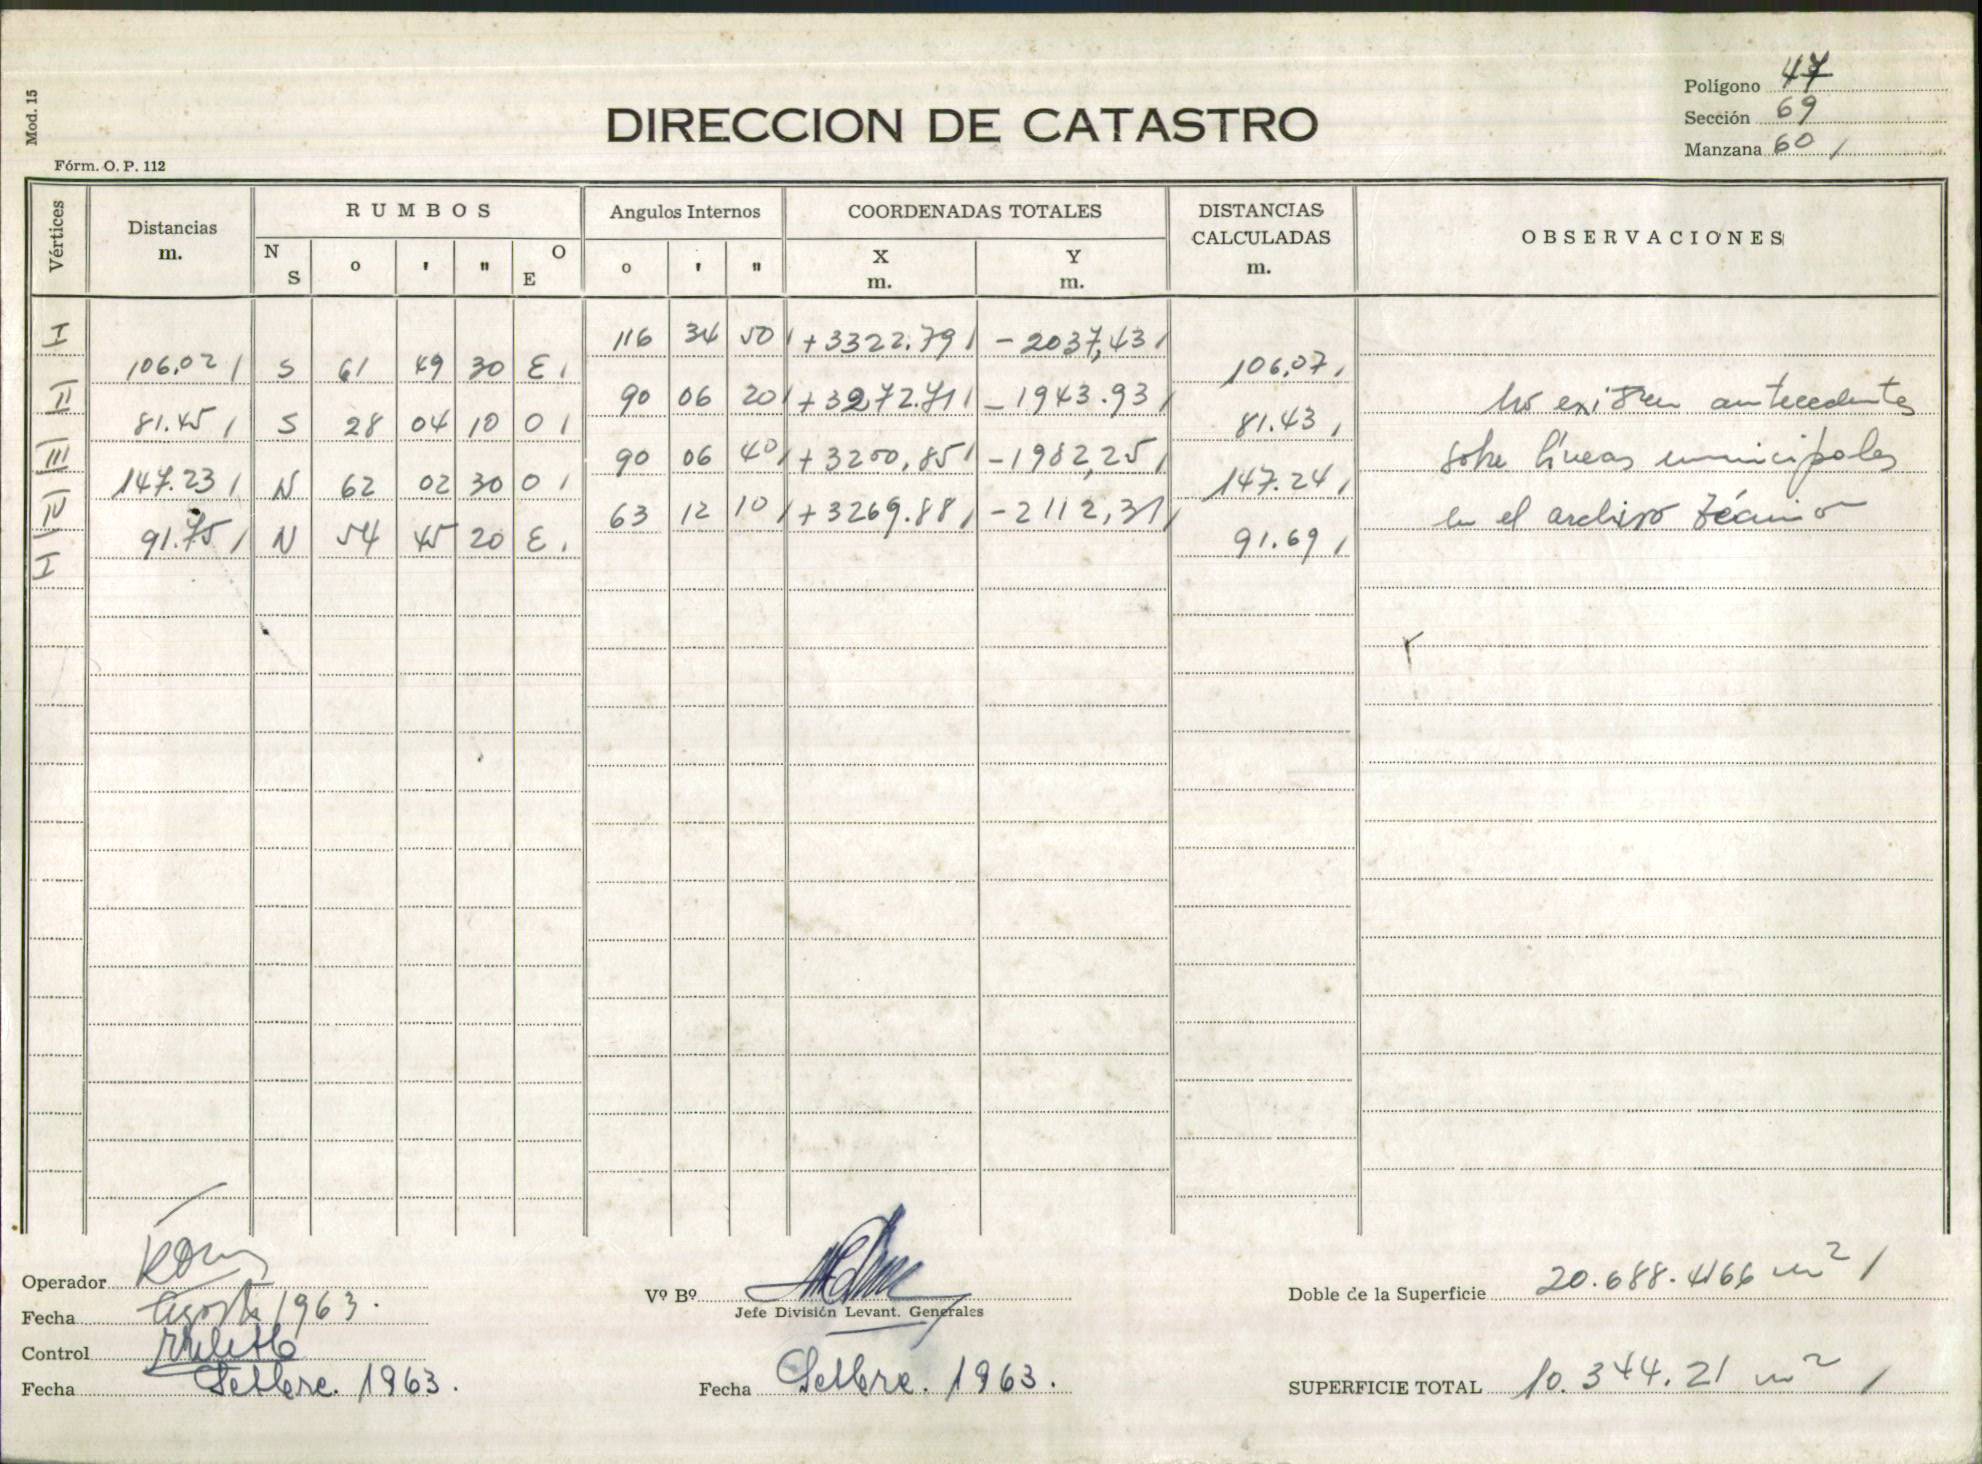 Mod. 15
Fórm. O. P. 112
DIRECCION DE CATASTRO
Polígono 47
Sección 69
Manzana 60 /
Vértices
Distancias m.
RUMBOS
N S o ' " O E
Angulos Internos
o ' "
COORDENADAS TOTALES
X m. Y m.
DISTANCIAS CALCULADAS m.
OBSERVACIONES
I 116 34 50 / +3322.79 / -2037,43 /
106.02 / S 61 49 30 E / 106.07 /
II 90 06 20 / +3272.71 / -1943.93 / No existen antecedentes
81.45 / S 28 04 10 O / 81.43 /
III 90 06 40 / +3200,85 / -1982,25 / sobre líneas municipales
147.23 / N 62 02 30 O / 147.24 /
IV 63 12 10 / +3269.88 / -2112,31 / en el archivo técnico
91.75 / N 54 45 20 E / 91.69 /
I
Operador
Fecha Agosto 1963.
Control
Fecha Setbre. 1963.
Vº Bº
Jefe División Levant. Generales
Fecha Setbre. 1963.
Doble de la Superficie 20.688.4166 m² /
SUPERFICIE TOTAL 10.344.21 m² /